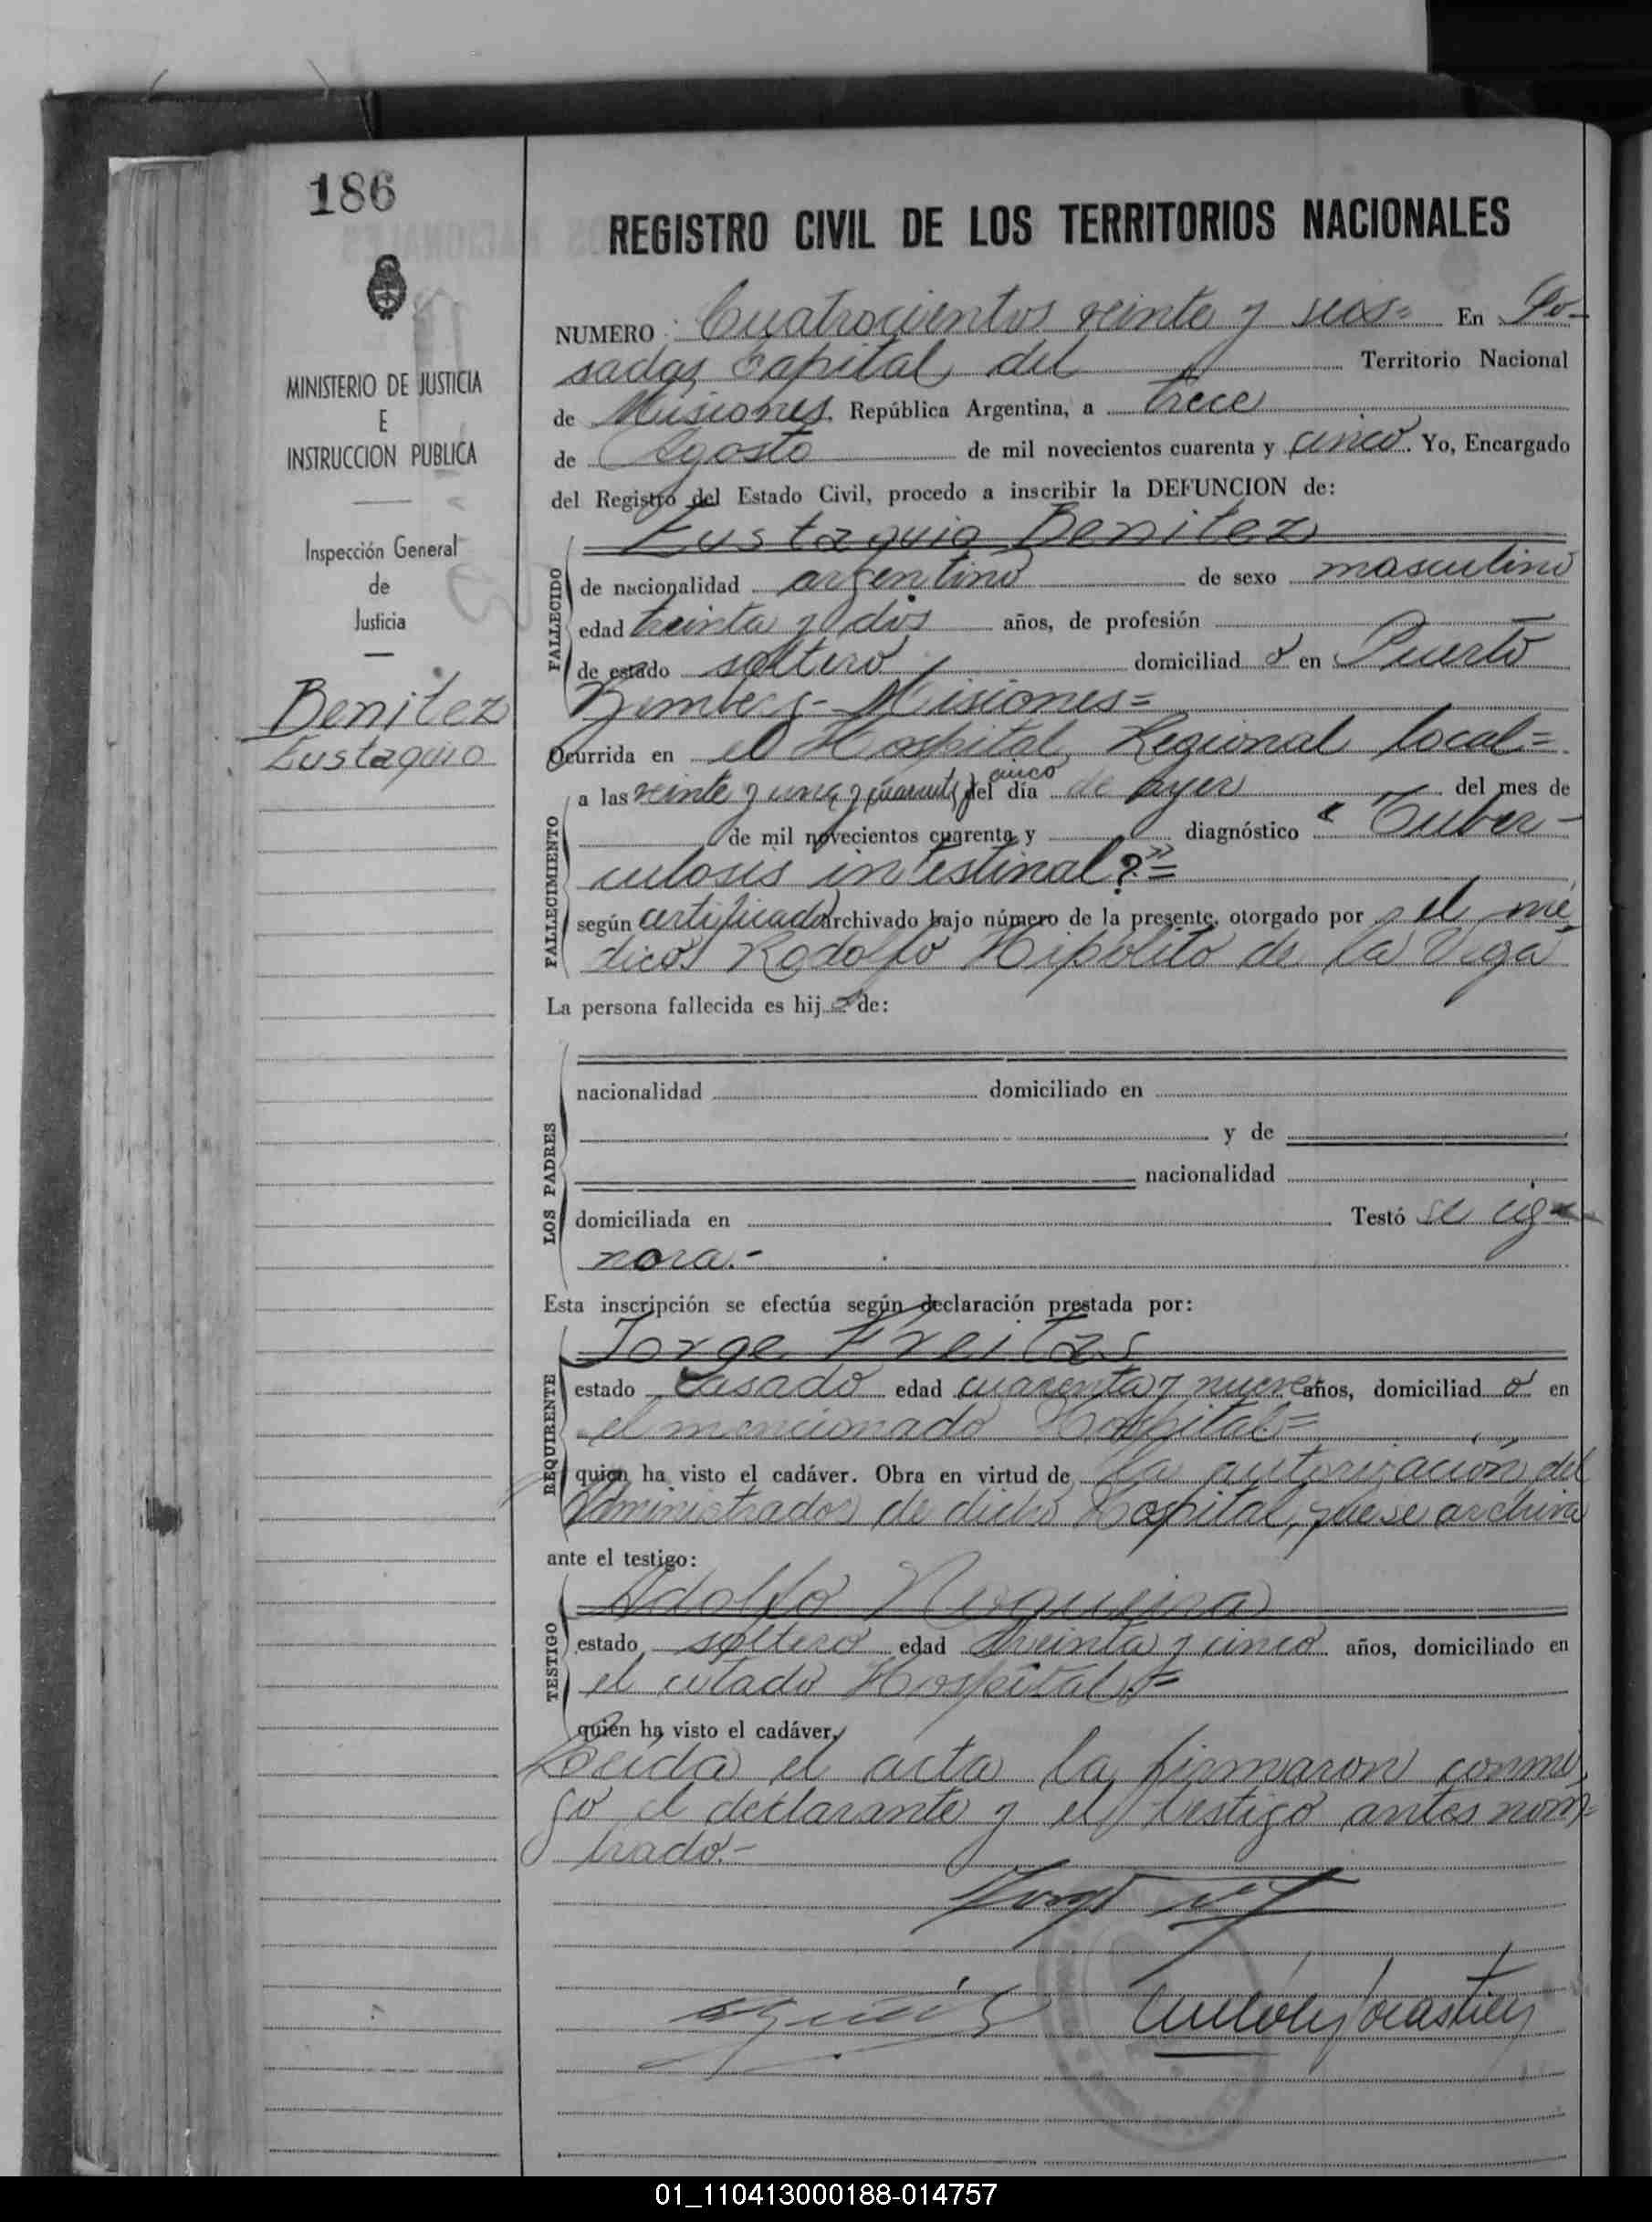 186
MINISTERIO DE JUSTICIA
E
INSTRUCCION PUBLICA
Inspección General
de
Justicia
Benitez
Eustaquio
REGISTRO CIVIL DE LOS TERRITORIOS NACIONALES
NUMERO Cuatrocientos veinte y seis= En Po-
sadas Capital del Territorio Nacional
de Misiones. República Argentina, a trece
de Agosto de mil novecientos cuarenta y cinco. Yo, Encargado
del Registro del Estado Civil, procedo a inscribir la DEFUNCION de:
Eustaquio Benitez
FALLECIDO
de nacionalidad argentino de sexo masculino
edad treinta y dos años, de profesión
de estado soltero domiciliad o en Puerto
Bemberg- Misiones=
Ocurrida en el Hospital Regional local=
cinco
a las veinte y una y cuarenta y del día de ayer del mes de
FALLECIMIENTO
de mil novecientos cuarenta y diagnóstico "Tuber-
culosis intestinal?"=
según certificado archivado bajo número de la presente, otorgado por el mé-
dico Rodolfo Hipólito de la Vega
La persona fallecida es hij o de:
LOS PADRES
nacionalidad domiciliado en
y de
nacionalidad
domiciliada en Testó se ig-
nora.-
Esta inscripción se efectúa según declaración prestada por:
Jorge Freitas
REQUIRENTE
estado casado edad cuarenta y nueve años, domiciliad o en
el mencionado Hospital=
quien ha visto el cadáver. Obra en virtud de la autorización del
Administrador de dicho Hospital, que se archiva
ante el testigo:
Adolfo
TESTIGO
estado soltero edad treinta y cinco años, domiciliado en
el citado Hospital=
quien ha visto el cadáver,
Leida el acta la firmaron conmi-
go el declarante y el testigo antes nom-
brado.-
01_110413000188-014757